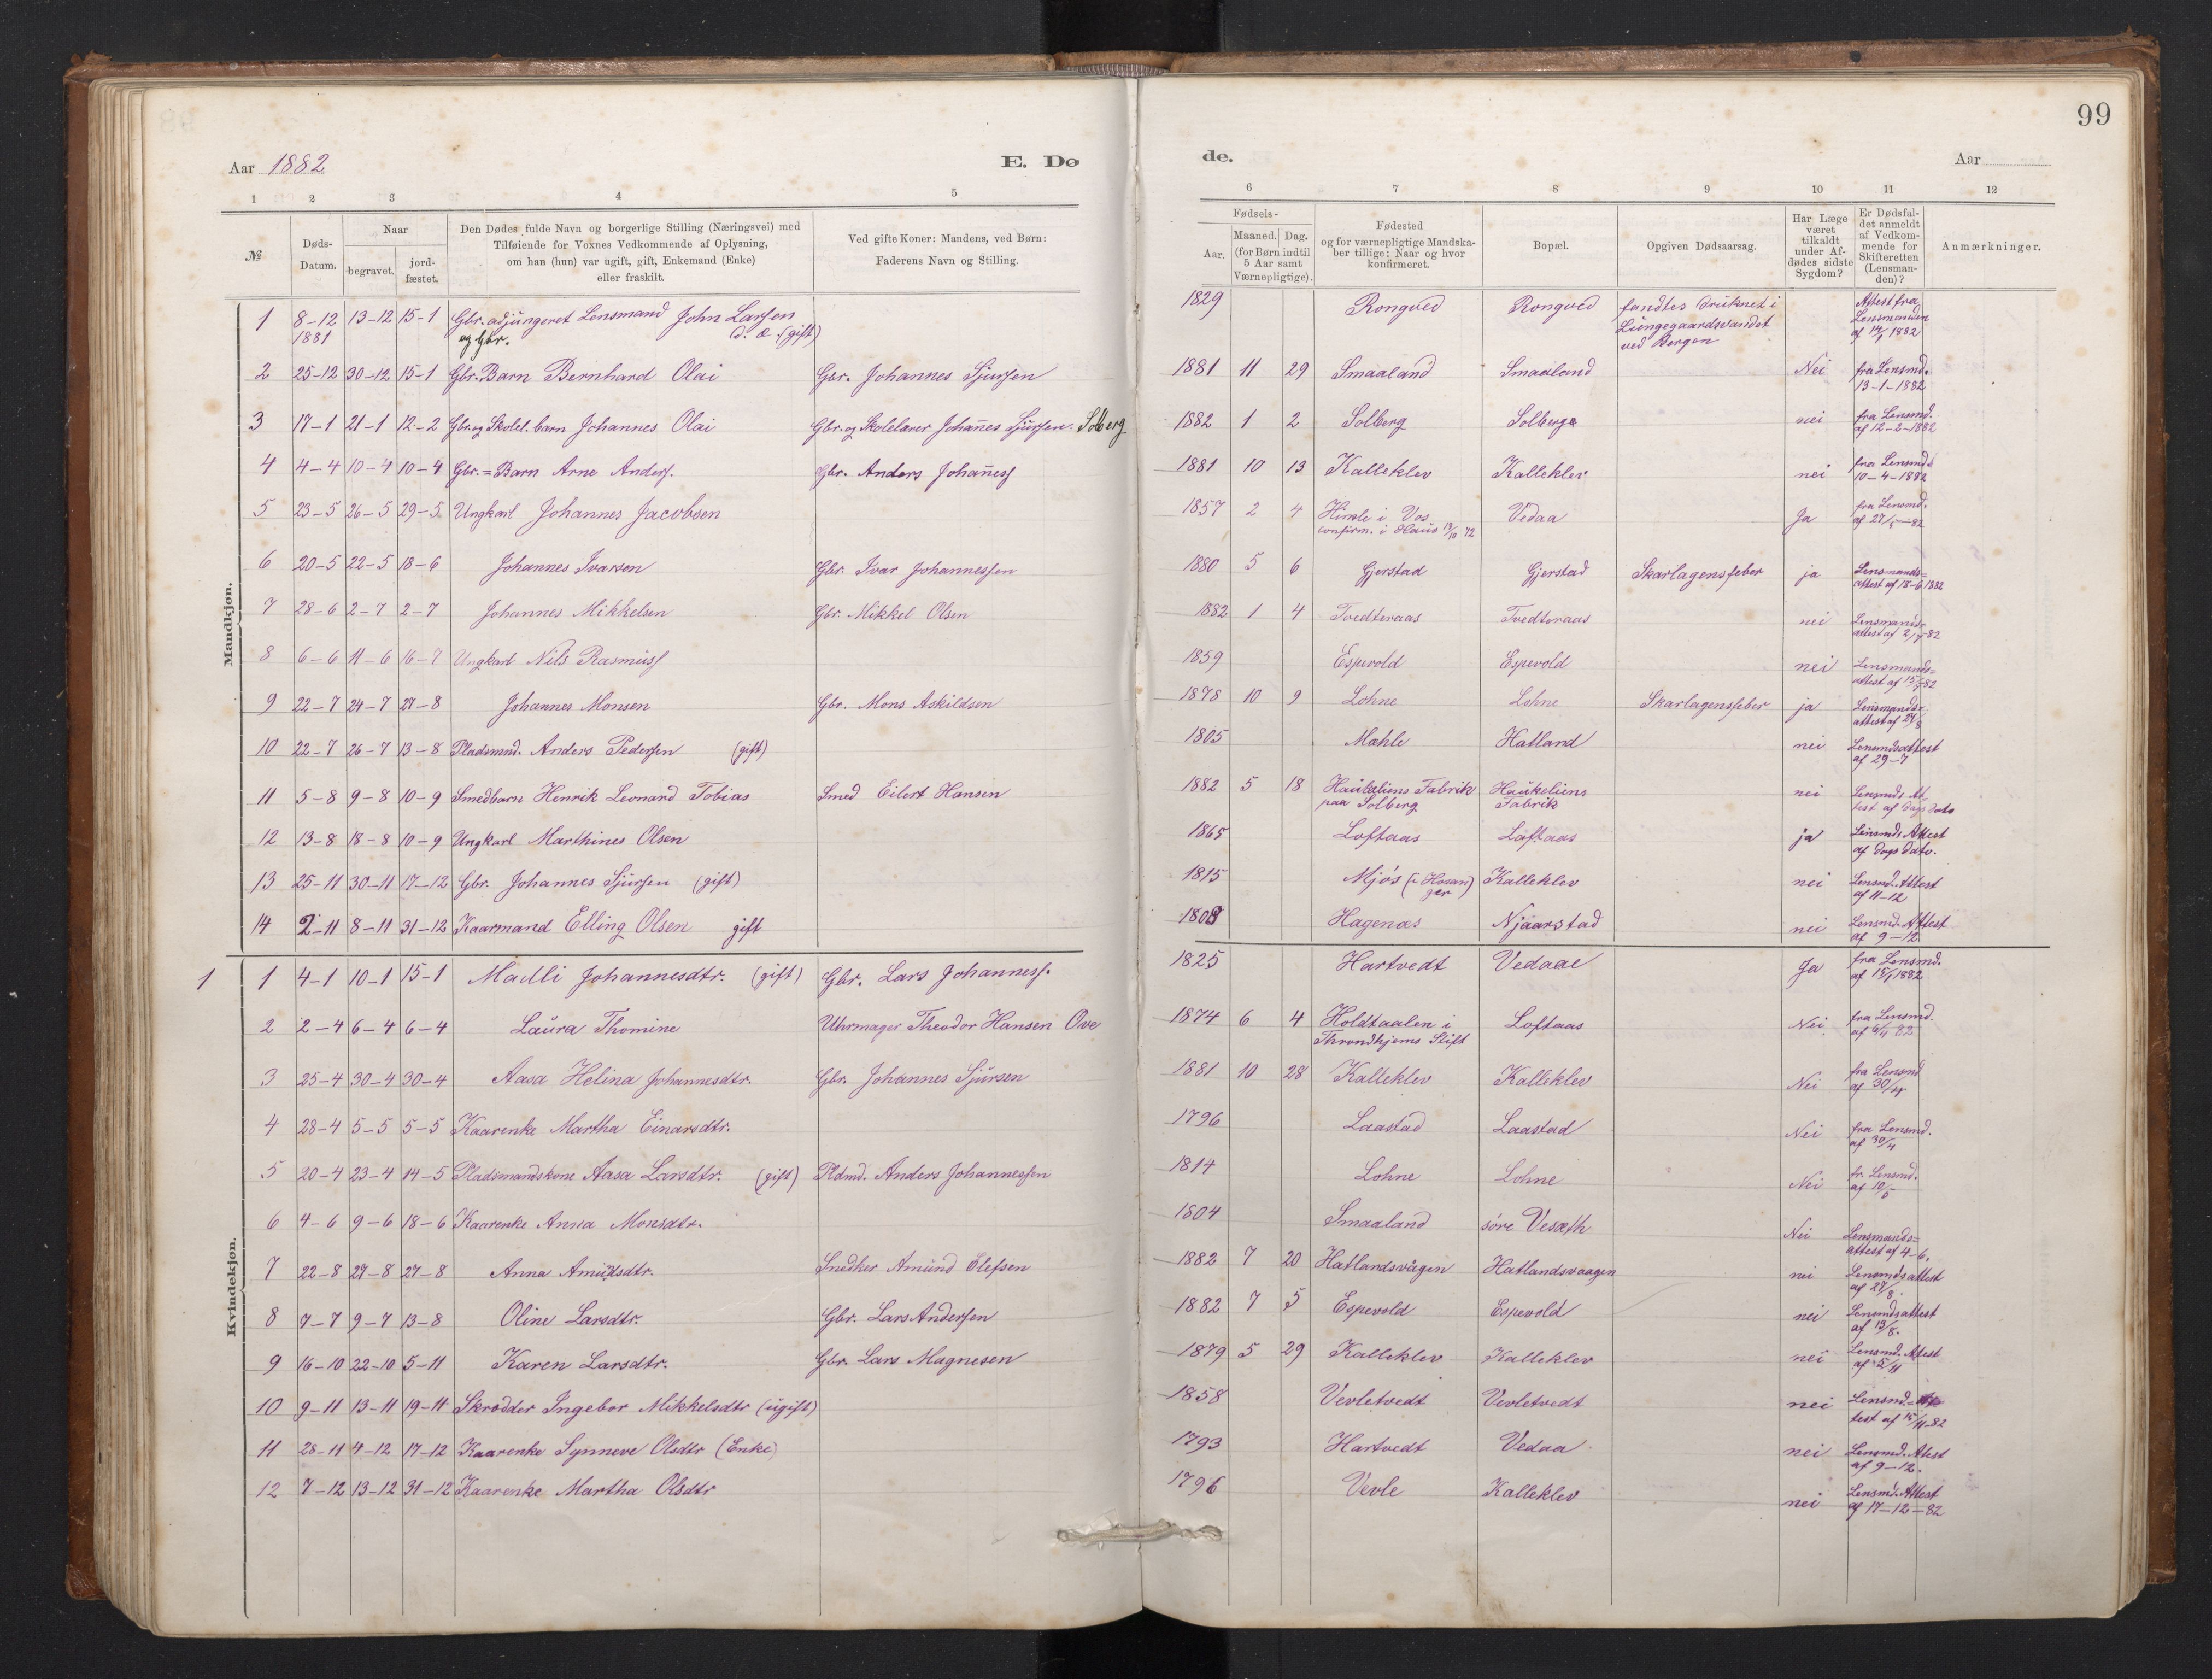 99
Aar 1882 E. Dø de. Aar
1 2 3 4 5 6 7 8 9 10 11 12
№ Døds-Datum. Naar begravet. jord-fæstet. Den Dødes fulde Navn og borgerlige Stilling (Næringsvei) med Tilføiende for Voxnes Vedkommende af Oplysning, om han (hun) var ugift, gift, Enkemand (Enke) eller fraskilt. Ved gifte Koner: Mandens, ved Børn: Faderens Navn og Stilling. Fødsels- Aar. Maaned. Dag. (for Børn indtil 5 Aar samt Værnepligtige). Fødested og for værnepligtige Mandskaber tillige: Naar og hvor konfirmeret. Bopæl. Opgiven Dødsaarsag. Har Læge været tilkaldt under Afdødes sidste Sygdom? Er Dødsfaldet anmeldt af Vedkommende for Skifteretten (Lensmanden)? Anmærkninger.
Mandkjøn.
1 8-12 1881 13-12 15-1 Gbr. adjungeret Lensmand John Larsen og Gbr. d. æ. (gift) 1829 Rongved Rongved fandtes druknet i Lungegaardsvandet ved Bergen Attest fra Lensmanden af 14/1 1882
2 25-12 30-12 15-1 Gbr. Barn Bernhard Olai Gbr. Johannes Sjursen 1881 11 29 Smaaland Smaaland Nei fra Lensmd. 13-1-1882
3 17-1 21-1 12-2 Gbr. og Skolel. barn Johannes Olai Gbr. og Skolelærer Johañes Sjursen Solberg 1882 1 2 Solberg Solberg nei fra Lensmd. af 12-2-1882
4 4-4 10-4 10-4 Gbr.=Barn Arne Anders. Gbr. Anders Johañes 1881 10 13 Kalleklev Kalleklev nei fra Lensmd. 10-4-1882
5 23-5 26-5 29-5 Ungkarl Johannes Jacobsen 1857 2 4 Himle i Vos confirm. i Haus 13/10 72 Vedaa Ja fra Lensmd. af 27/5-82
6 20-5 22-5 18-6 Johannes Ivarsen Gbr. Ivar Johannessen 1880 5 6 Gjerstad Gjerstad Skarlagensfeber ja Lensmands= attest af 18-6 1882
7 28-6 2-7 2-7 Johannes Mikkelsen Gbr. Mikkel Olsen 1882 1 4 Tvedteraas Tvedteraas nei Lensmands= attest af 2/7-82
8 6-6 11-6 16-7 Ungkarl Nils Rasmuss 1859 Espevold Espevold nei Lensmands= attest af 15/7-82
9 22-7 24-7 27-8 Johannes Monsen Gbr. Mons Askildsen 1878 10 9 Lohne Lohne Skarlagensfeber ja Lensmands= attest af 27/8
10 22-7 26-7 13-8 Pladsmd. Anders Pedersen (gift) 1805 Mæhle Hatland nei Lensmdsattest af 29-7
11 5-8 9-8 10-9 Smedbarn Henrik Leonard Tobias Smed Eilert Hansen 1882 5 18 Haukeliens Fabrik paa Solberg Haukeliens Fabrik nei Lensmds At- test af dags dato
12 13-8 18-8 10-9 Ungkarl Marthines Olsen 1865 Loftaas Loftaas ja Lensmds Attest af dags dato.
13 25-11 30-11 17-12 Gbr. Johannes Sjursen (gift) 1815 Mjøs (i Hosan ger) Kalleklev nei Lensmd. Attest af 11-12
14 2-11 8-11 31-12 Kaarmand Elling Olsen gift 1803 Hagenæs Njaarstad nei Lensmd. Attest af 9-12
Kvindekjøn.
1 1 4-1 10-1 15-1 Madli Johannesdtr. (gift) Gbr. Lars Johanness. 1825 Hartvedt Vedaae Ja fra Lensmd. af 15/1 1882
2 2-4 6-4 6-4 Laura Thomine Uhrmager Theodor Hansen Ove 1874 6 4 Holdtaalen i Throndhjems Stift Loftaas Nei fra Lensmd. af 6/4 82
3 25-4 30-4 30-4 Aasa Helina Johannesdtr. Gbr. Johannes Sjursen 1881 10 28 Kalleklev Kalleklev Nei fra Lensmd af 30/4
4 28-4 5-5 5-5 Kaarenke Martha Einarsdtr. 1796 Laastad Laastad Nei fra Lensmd. af 30/4
5 20-4 23-4 14-5 Pladsmandskone Aasa Larsdtr. (gift) Pldmd. Anders Johannessen 1814 Lohne Lohne Nei fr. Lensmd. af 10/5
6 4-6 9-6 18-6 Kaarenke Anna Monsdtr. 1804 Smaaland søre Vesæth Nei Lensmands= attest af 4-6.
7 22-8 27-8 27-8 Anna Amundsdtr. Snedker Amund Olefsen 1882 7 20 Hatlandsvågen Hatlandsvaagen nei Lensmdsattest af 27/8.
8 7-7 9-7 13-8 Oline Larsdtr. Gbr. Lars Andersen 1882 7 5 Espevold Espevold nei Lensmdsattest af 13/8.
9 16-10 22-10 5-11 Karen Larsdtr. Gbr. Lars Magnesen 1879 5 29 Kalleklev Kalleklev nei Lensmd. Attest af 5/11
10 9-11 13-11 19-11 Skrædder Ingebor Mikkelsdtr (ugift) 1858 Vevletvedt Vevletvedt nei Lensmd.= At test af 15/11-82
11 28-11 4-12 17-12 Kaarenke Synneve Olsdtr (Enke) 1793 Hartvedt Vedaa nei Lensmd. Attest af 9-12.
12 7-12 13-12 31-12 Kaarenke Martha Olsdtr 1796 Vevle Kalleklev nei Lensmd. Attest af 17-12-82